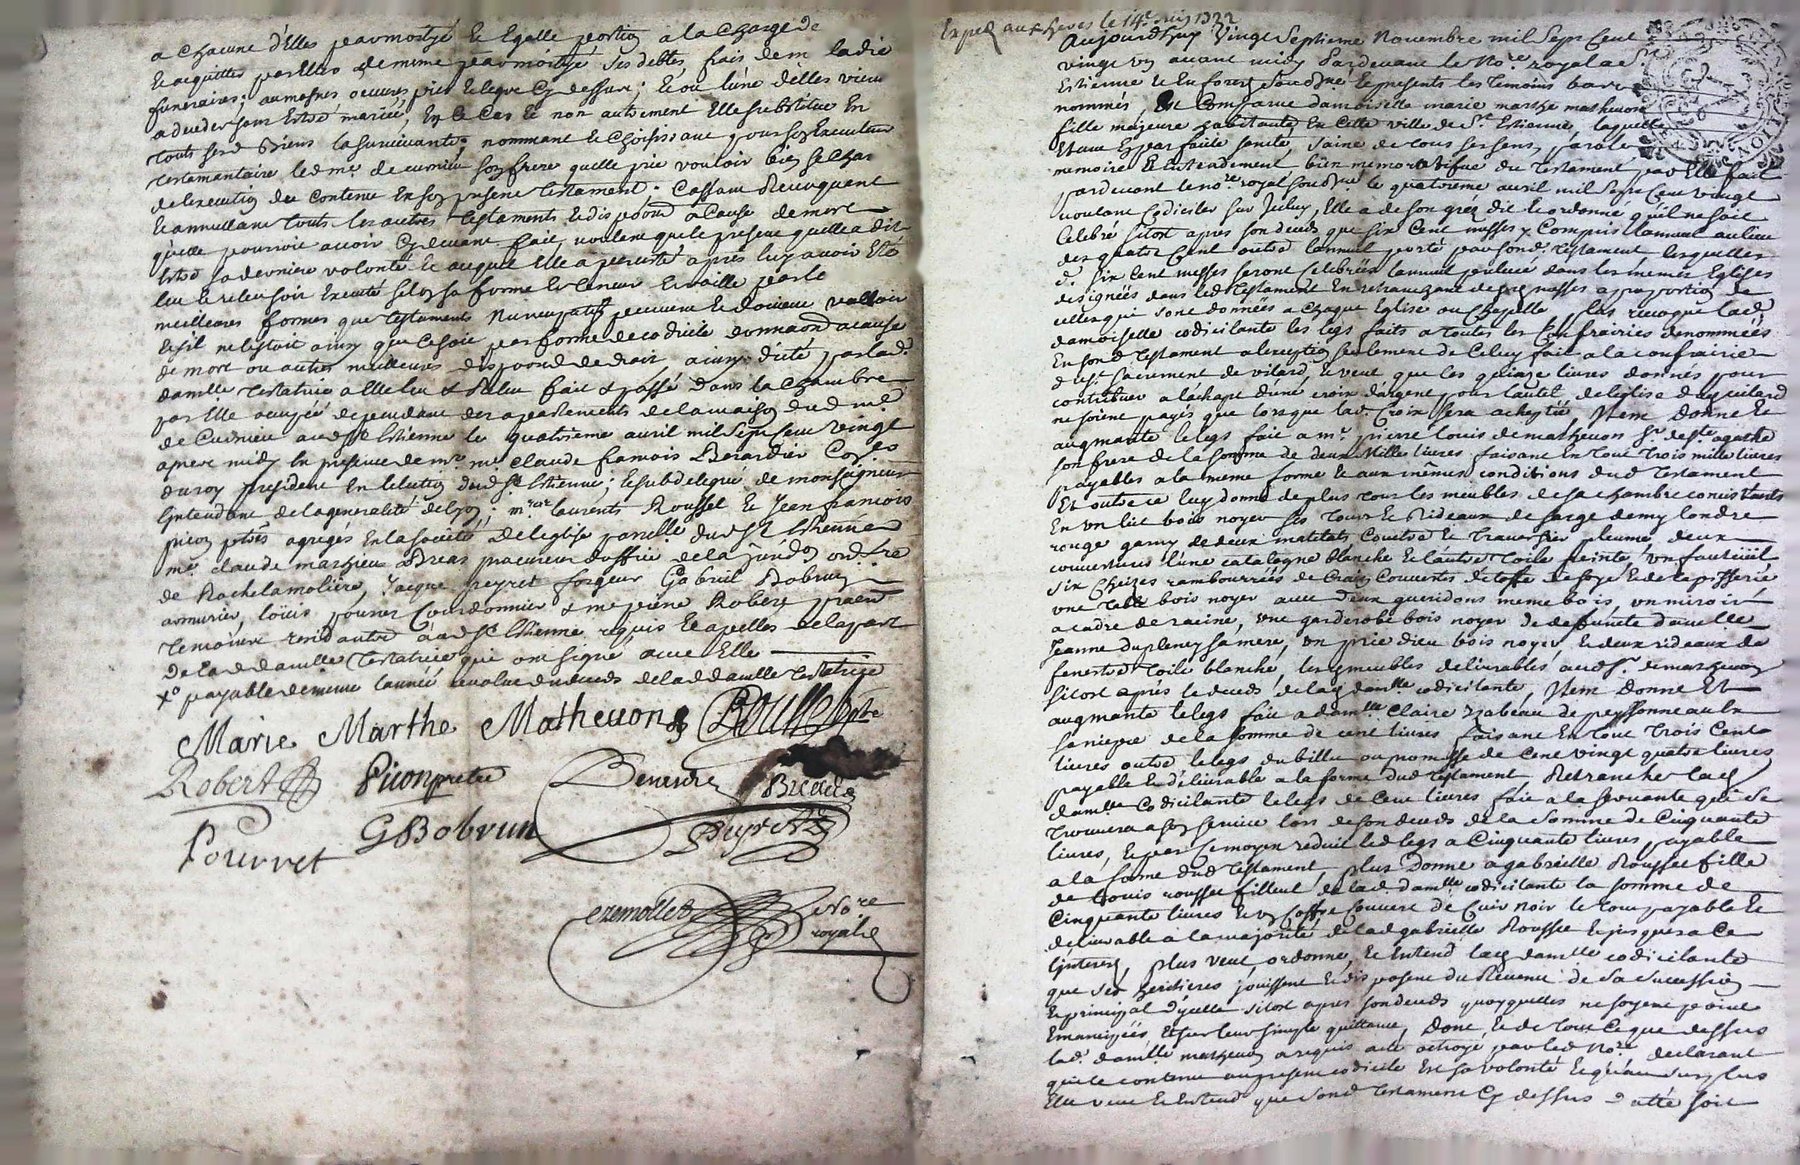 a chacune d'Elles par moityé et Egalle portion a la charge de
et acquitter par Elles de meme par moityé ses debtes fais de maladie
funeraires, aumosnes oeuvres pies et legue Cy dessus; Et ou lune delles viens
a deceder sans Estre mariée, En ce Cas et non autrement Elle substitue En
touts sesd Biens la survivante; nommant et choisissant pour son Executeur
testamentaire led mr de curnieu son frere quelle prie vouloir bien se char
de lexecution du contenu En son present testament. Cassant Revoquant
et annullant touts les autres testaments et dispoons a cause de mort
quelle pourroit avoir Cy devant fait, voulant que le present quelle a dit
Estre sa derniere volonté et auquel Elle a percisté apres luy avoir Eté
leu et releu soit Executé selon sa forme et teneur Et vaille par le
meilleures formes que testaments Nuncupatifs peuvent et doivent valloir
Et sil ne lestoit ainsy que ce soit par forme de codicile donnaon a cause
de mort ou autres meilleures dispoons de droit ainsy dicté par lad.
damlle testatrice a Elle leu & Releu fait & passé dans la chambre
par Elle occupée dependant des apartements de la maison dud mr
de Curnieu aud St Estienne le quatrieme avril mil sept cent vingt
apres midy En presence de mr me claude francois Berardier Conser
du roy president En lelection dud St Estienne; et subdelegué de monseigneur
Lintendant de la generalité de Lyon; mrs laurents Roussel et Jean francois
picon pbres agregés En la societé de leglise parroille dud St Estienne
me claude mathieu Breas procureur doffice de la jurdon ordre
de Rochelamoliere, Jacque peyret forgeur Gabriel Bobrun
armurier, loüis pourret Cordonnier & me pierre Robert praen
temoins residants aud St Estienne requis et apellés de la part
de lad damlle testatrice qui ont signé avec Elle
xo payable de meme lannée revolue du deceds de lad damlle testatrice
Marie Marthe Matheuon Roussel pbre
Robert Picon pretre
Pourret G Bobrun Peyret
Nore
royal
Exped aux
Aujourdhuy Vingt Septieme Novembre mil Sept Cent
vingt un avant midy Pardevant le Nore royal a St
Estienne et En forez soussigné et presents les temoins bas
nommés, Est Comparue damoiselle marie marthe matheuon
fille majeure habitante En cette ville de St Estienne, laquelle
Etant En parfaite senté, saine de tous ses sens, parole
memoire Et Entendement bien memorative du Testament par Elle fait
pardevant le nore royal soussigné le quatorieme avril mil sept Cent vingt
voulant Codiciler sur Iceluy, Elle a de son gréz dit et ordonné quil ne soit
Celebré sitost apres son deceds que six Cent messes y Compris lannuel au lieu
des quatre Cent outre lannuel porté par sond. Testament, lesquelles
d. six Cent messes seront celebrées lannuel precisé dans les memes Eglises
designées dans led Testament En retranchant desd messes a proportion de
celles qui sont données a chaque Eglise ou Chapelle plus revoque lad.
damoiselle codicilante les legs faits a toutes les Confrairies denommées
En sond Testament a lexception seulement de Celuy fait a la confrairie
du St Sacrement de vilard Et veut que les quinze livres données pour
contribuer a lachapt d'une croix d'argent pour lautel de leglise dud vilard
ne soient payés que lorsque lad. Croix sera acheptée Item Donne Et
augmante le legs fait a mr. pierre louis de matheuon sr. de ste. agathe
son frere de la somme de deux Milles livres faisant En tout Trois mille livres
payables a la meme forme et aux mêmes conditions dud Testament
Et outre ce luy donne de plus tous les meubles de sa chambre consistants
En un lict bois noyer ses tours et Rideaux de sarge demy londre
rouge garny de deux matelats coëttre et traversier plume, deux
couvertures l'une catalogne blanche et l'autre Toile peinte, un fauteüil
six cheizes rambourrées de crain couvertes d'étoffe de soye et de tapisserie
une table bois noyer avec deux gueridons meme bois, un miroir
a cadre de racine, une garderobe bois noyer de defunte damlle
Jeanne dupleney sa mere, un prie dieu bois noyer et deux rideaux de
fenestre toile blanche, lesq meubles delivrables aud sr. de matheuon
sitost apres le deceds de lad damlle codicilante, Item Donne Et
augmante le legs fait a damlle Claire Izabeau de peyssonneaux
sa niepce de la somme de cent livres faisant En tout Trois Cents
livres outre le legs du billet ou promesse de Cent vingt quatre livres
payable Et délivrable a la forme dud Testament Retranche lad
damlle Codicilante le legs de Cent livres fait a la servante qui se
trouvera a son service lors de son deceds de la somme de Cinquante
livres, et par ce moyen reduit led legs a Cinquante livres payable
a la forme dud Testament, plus Donne a gabrielle Roussel fille
de Louis roussel filleul de lad damlle codicilante la somme de
Cinquante livres et un Coffre couvert de Cuir noir le tout payable Et
delivrable à la majorité de lad gabrielle Roussel Et jusques a ce
sans Interest, plus Veut ordonne, Et Entend lad damlle codicilante
que ses heritieres jouissent Et disposent du Revenu de sa succession
Et principal d'ycelle sitost apres son deceds quoyquelles ne soyent point
Emancipées Et sur leur simple quittance, Donc Et de tout ce que dessus
lad. damlle matheuon a requis acte octroyé par led Nore declarant
que le contenu au present codicile Est sa volonté Et quau surplus
Elle veut Et Entend que sond Testament Cy dessus datté soit